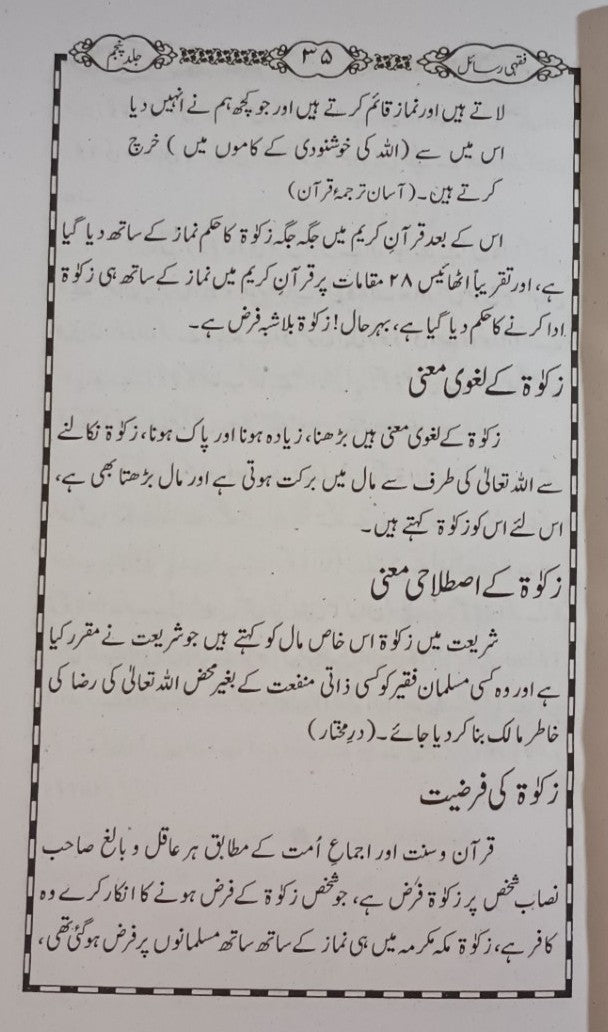 فقہی رسائل
۳۵
جلد پنجم
لاتے ہیں اور نماز قائم کرتے ہیں اور جو کچھ ہم نے انہیں دیا
اس میں سے (اللہ کی خوشنودی کے کاموں میں) خرچ
کرتے ہیں۔ (آسان ترجمۂ قرآن)
اس کے بعد قرآنِ کریم میں جگہ جگہ زکوٰۃ کا حکم نماز کے ساتھ دیا گیا
ہے، اور تقریباً اٹھائیس ۲۸ مقامات پر قرآنِ کریم میں نماز کے ساتھ ہی زکوٰۃ
ادا کرنے کا حکم دیا گیا ہے، بہر حال! زکوٰۃ بلاشبہ فرض ہے۔
زکوٰۃ کے لغوی معنی
زکوٰۃ کے لغوی معنی ہیں بڑھنا، زیادہ ہونا اور پاک ہونا، زکوٰۃ نکالنے
سے اللہ تعالیٰ کی طرف سے مال میں برکت ہوتی ہے اور مال بڑھتا بھی ہے،
اس لئے اس کو زکوٰۃ کہتے ہیں۔
زکوٰۃ کے اصطلاحی معنی
شریعت میں زکوٰۃ اس خاص مال کو کہتے ہیں جو شریعت نے مقرر کیا
ہے اور وہ کسی مسلمان فقیر کو کسی ذاتی منفعت کے بغیر محض اللہ تعالیٰ کی رضا کی
خاطر مالک بنا کر دیا جائے۔ (درِ مختار)
زکوٰۃ کی فرضیت
قرآن و سنت اور اجماعِ اُمت کے مطابق ہر عاقل و بالغ صاحب
نصاب شخص پر زکوٰۃ فرض ہے، جو شخص زکوٰۃ کے فرض ہونے کا انکار کرے وہ
کافر ہے، زکوٰۃ مکہ مکرمہ میں ہی نماز کے ساتھ ساتھ مسلمانوں پر فرض ہو گئی تھی،